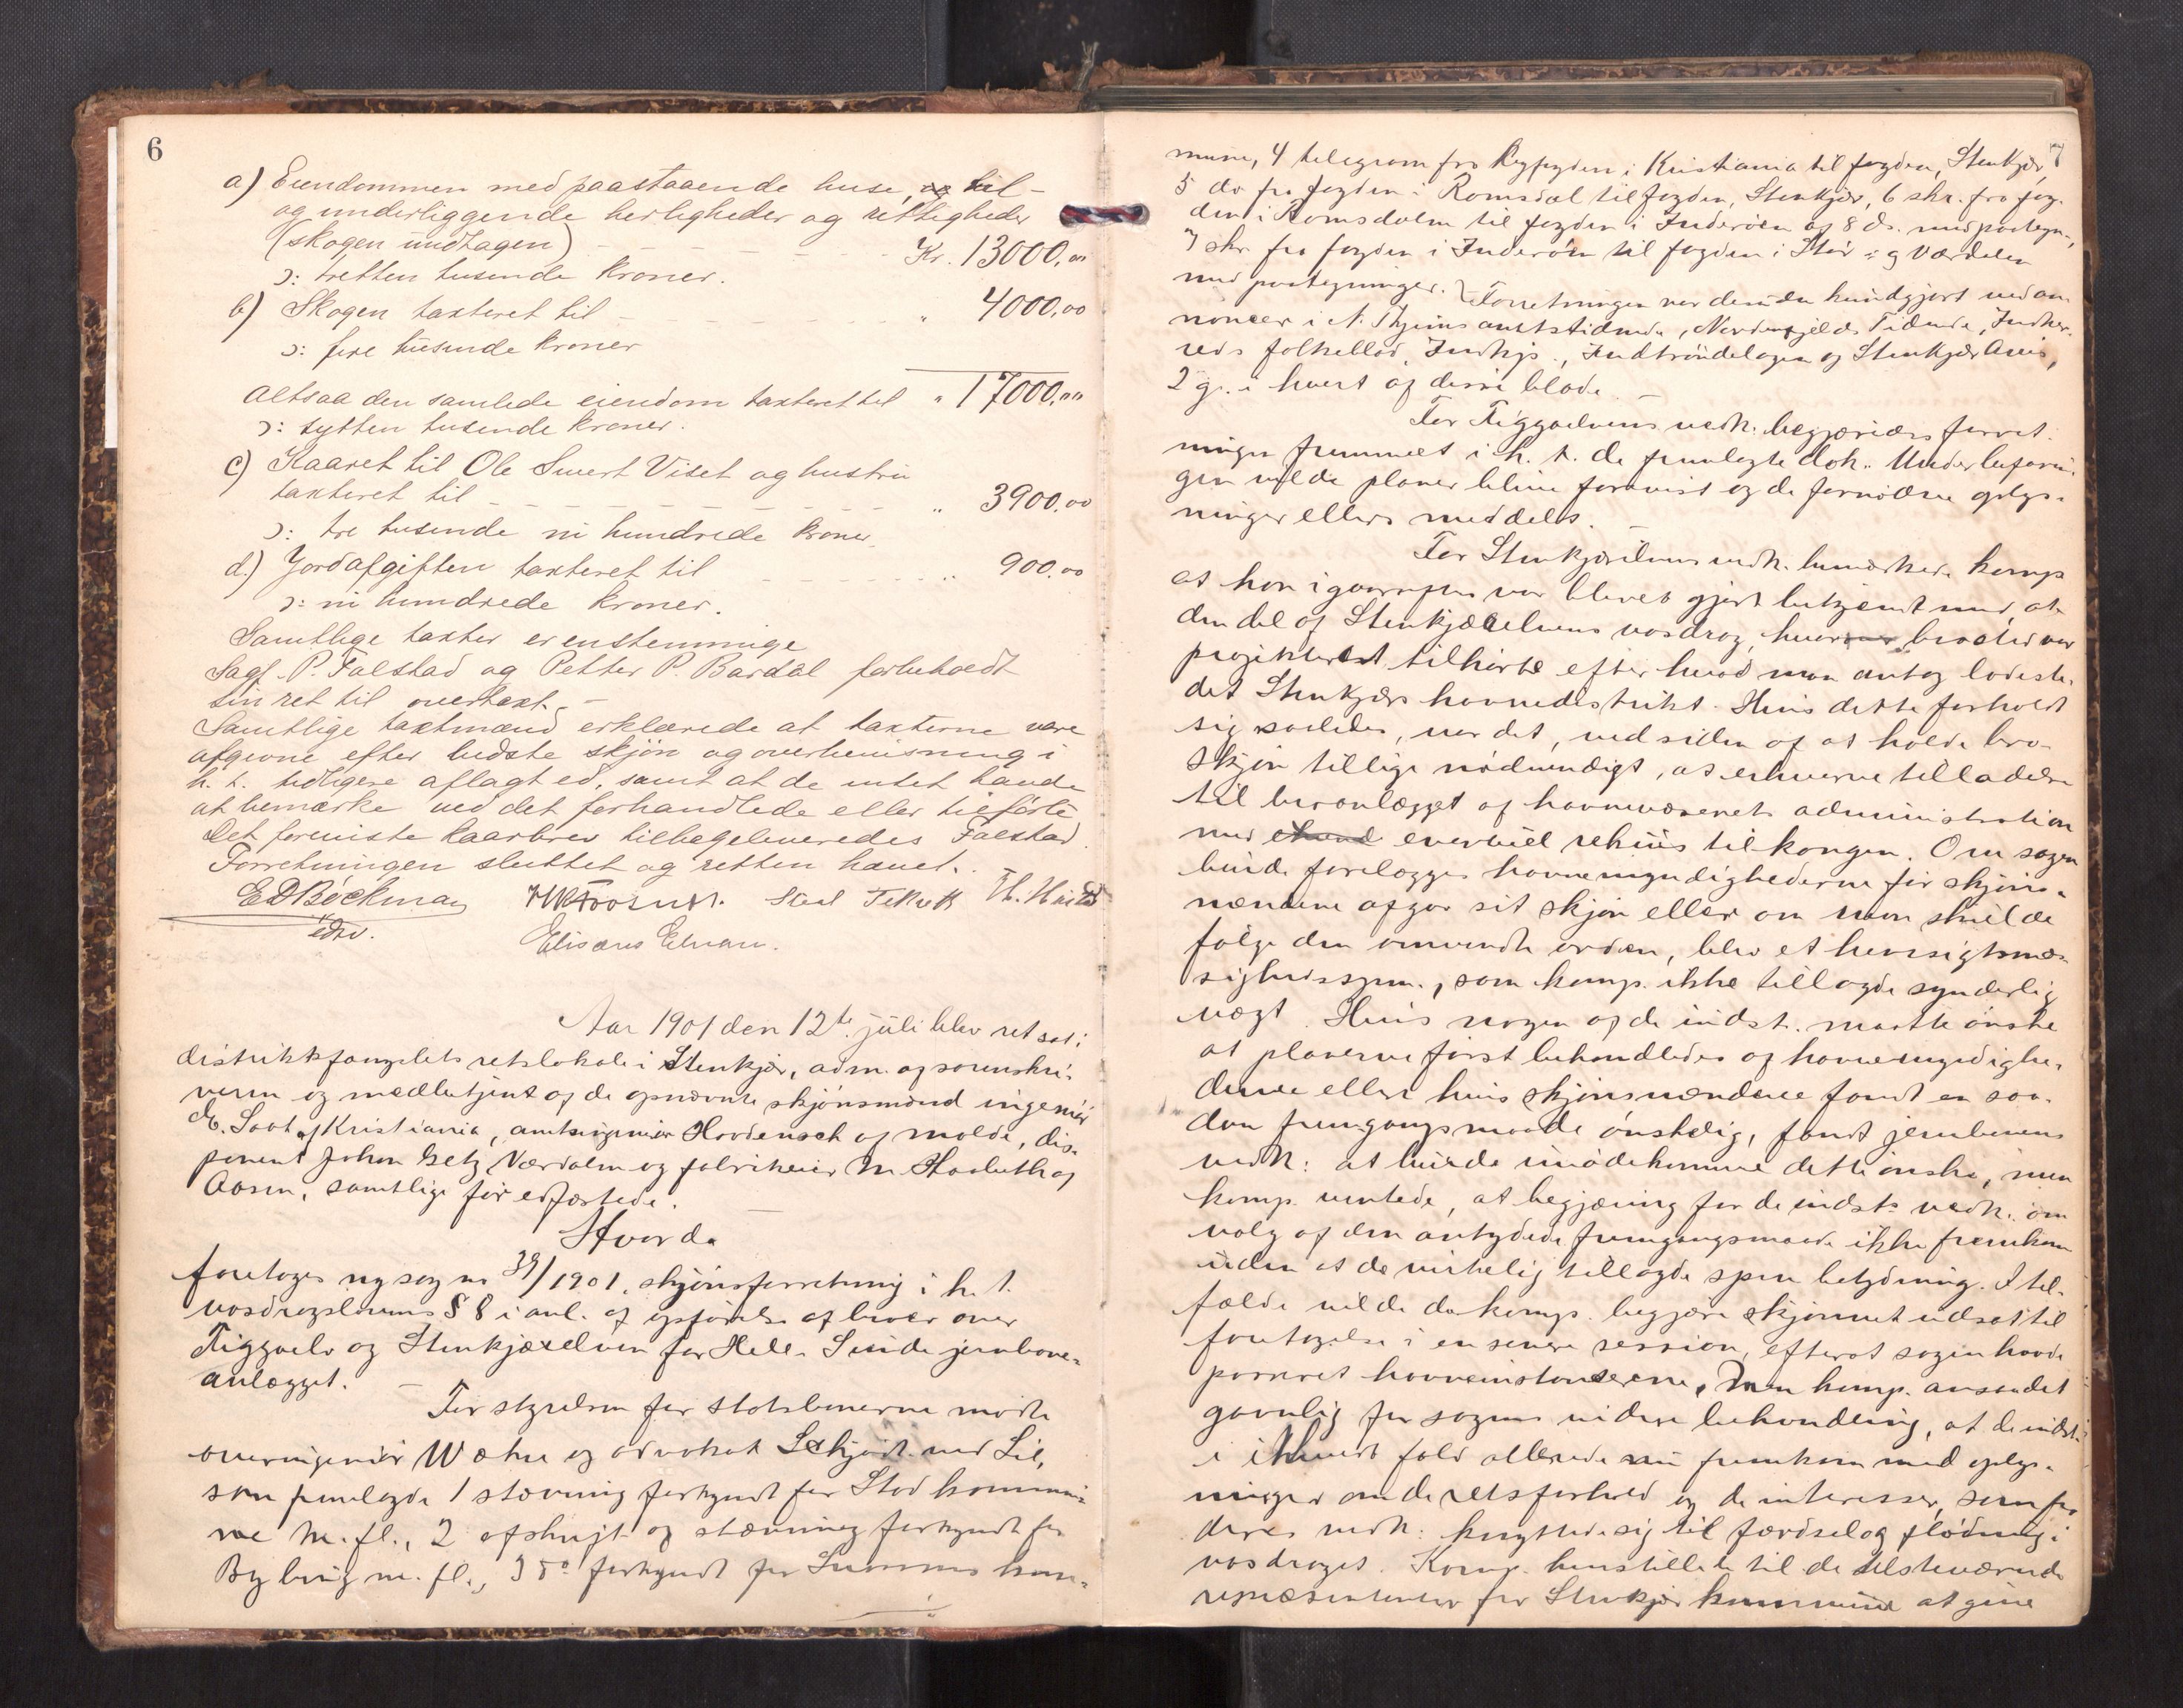 6
a) Eiendommen med paastaaende huse, og til-
og underliggende herligheder og rettigheder
(skogen undtagen) - - - - - Kr. 13000,00
ɔ: tretten tusende kroner.
b) Skogen taxteret til - - - - - " 4000,00
ɔ: fire tusende kroner
Altsaa den samlede eiendom taxteret til " 17000,00
ɔ: sytten tusende kroner.
c) Kaaret til Ole Sivert Viset og hustru
taxteret til - - - - - " 3900,00
ɔ: tre tusende ni hundrede kroner
d.) Jordafgiften taxteret til - - - - " 900,00
ɔ: ni hundrede kroner.
Samtlige taxter er enstemmige
Sagf. P. Falstad og Petter P. Bardal forbeholdt
sin ret til overtaxt. -
Samtlige taxtmænd erklærede at taxterne være
afgivne efter bedste skjøn og overbevisning i
h. t. tidligere aflagt ed, samt at de intet havde
at bemærke ved det forhandlede eller tilførte
Det foreviste kaarbrev tilbageleveredes Falstad.
Forretningen sluttet og retten hævet.
E D Bøckman
edsv.
Elisæus Elnan.
Aar 1901 den 12te juli blev ret sat i
distriktsfængslets retslokale i Stenkjær, adm. af sorenskri-
veren og medbetjent af de opnævnte skjønsmænd ingeniør
E. Soot af Kristiania, amtsingeniør Hovdenak af Molde, dis-
ponent Johan Getz Værdalen og fabrikeier M Haabeth af
Aasen, samtlige før edfæstede.
Hvorda
foretoges ny sag no 39/1901, skjønsforretning i h. t.
vasdragslovens § 8 i anl. af opførelse af broer over
Figgaelv og Stenkjærelven for Hell - Sunde jernbane-
anlægget. -
For styrelsen for statsbanerne mødte
overingeniør Wæhre og advokat Schjødt ved Lie,
som fremlagde 1 stævning forkyndt for Stod kommu-
ne m. fl., 2 afskrift af stævning forkyndt for
By brug m. fl., 3 do forkyndt for Snaasens kom-
7
mune, 4 telegram fra Byfogden i Kristiania til fogden, Stenkjær,
5 do fra fogden i Romsdal til fogden, Stenkjær, 6 skr. fra fog-
den i Romsdalen til fogden i Inderøen og 8 do. med paategn.,
7 skr. fra fogden i Inderøen til fogden i Stør- og Værdalen
med paategninger. Forretningen var desuden kundgjort ved an-
noncer i N. Thjems amtstidende, Nordenfjelds Tidende, Indher-
reds folkeblad, Indhjs., Indtrøndelagen og Stenkjær Avis,
2 g. i hvert af disse blade. -
For Figgaelvens vedk. begjæredes forret-
ningen fremmet i h. t. de fremlagte dok. Under befarin-
gen vilde planer blive forevist og de fornødne oplys-
ninger ellers meddeles. -
For Stenkjærelvens vedk. bemærkede komp.
at han igaaraftes var blevet gjort bekjendt med, at
den del af Stenkjærelvens vasdrag, hvor brosted var
projekteret tilhørte efter hvad man antog ladeste-
det Stenkjærs havnedistrikt. Hvis dette forholdt
sig saaledes, var det, ved siden af at holde bro-
skjøn tillige nødvendigt, at erhverve tilladelse
til broanlægget af havnevæsenets administration
med eventuel rekurs til kongen. Om sagen
burde forelægges havnemyndighederne før skjøns-
mændene afgav sit skjøn eller om man skulde
følge den omvendte orden, blev et hensigtsmæs-
sighedsspm., som komp. ikke tillagde synderlig
vægt. Hvis nogen af de indst. maatte ønske
at planerne først behandledes af havnemyndighe-
derne eller hvis skjønsmændene fandt en saa-
dan fremgangsmaade ønskelig, fandt jernbanens
vedk: at burde imødekomme dette ønske, men
komp. ventede, at begjæring for de indst: vedk. om
valg af den antydede fremgangsmaade ikke fremkom
uden at de virkelig tillagde spm betydning. I til-
fælde vilde da komp. begjære skjønnet udsat til
foretagelse i en senere session, efterat sagen havde
passeret havneinstanserne. Men komp. ansaa det
gavnlig for sagens videre behandling, at de indst:
i ethvert fald allerede nu fremkom med oplys-
ninger om de retsforhold og de interesser, som fra
deres vedk: knyttede sig til færdsel og flødning i
vasdraget. Komp. henstillede til de tilstedeværende
repræsentanter for Stenkjær kommune at give